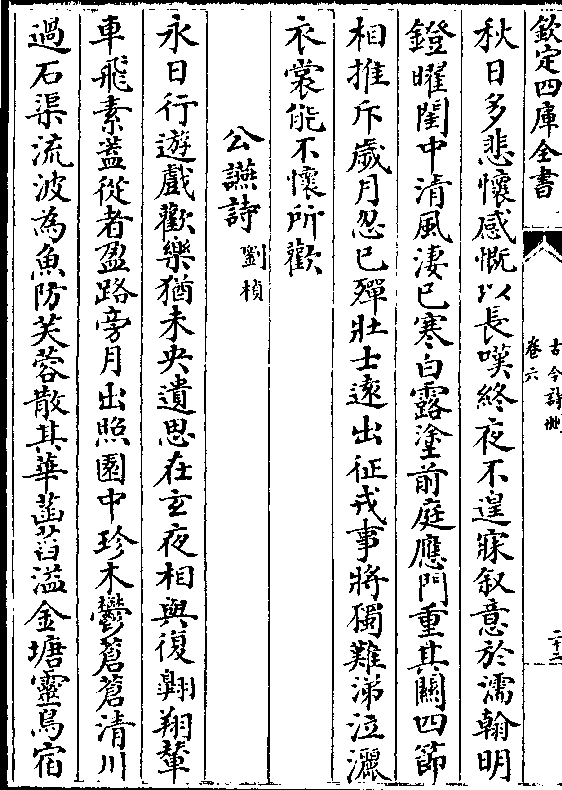 欽定四庫全書
古今詩刪
卷六
秋日多悲懷感慨以長嘆終夜不遑寐叙意於濡翰明
鐙曜閨中清風淒已寒白露塗前庭應門重其關四節
相推斥歲月忽已殫壯士遠出征戎事將獨難涕泣灑
衣裳能不懷所歡
公讌詩 劉楨
永日行遊戲歡樂猶未央遺思在玄夜相與復翺翔輦
車飛素蓋從者盈路旁月出照園中珍木鬱蒼蒼清川
過石渠流波為魚防芙蓉散其華菡萏溢金塘靈鳥宿